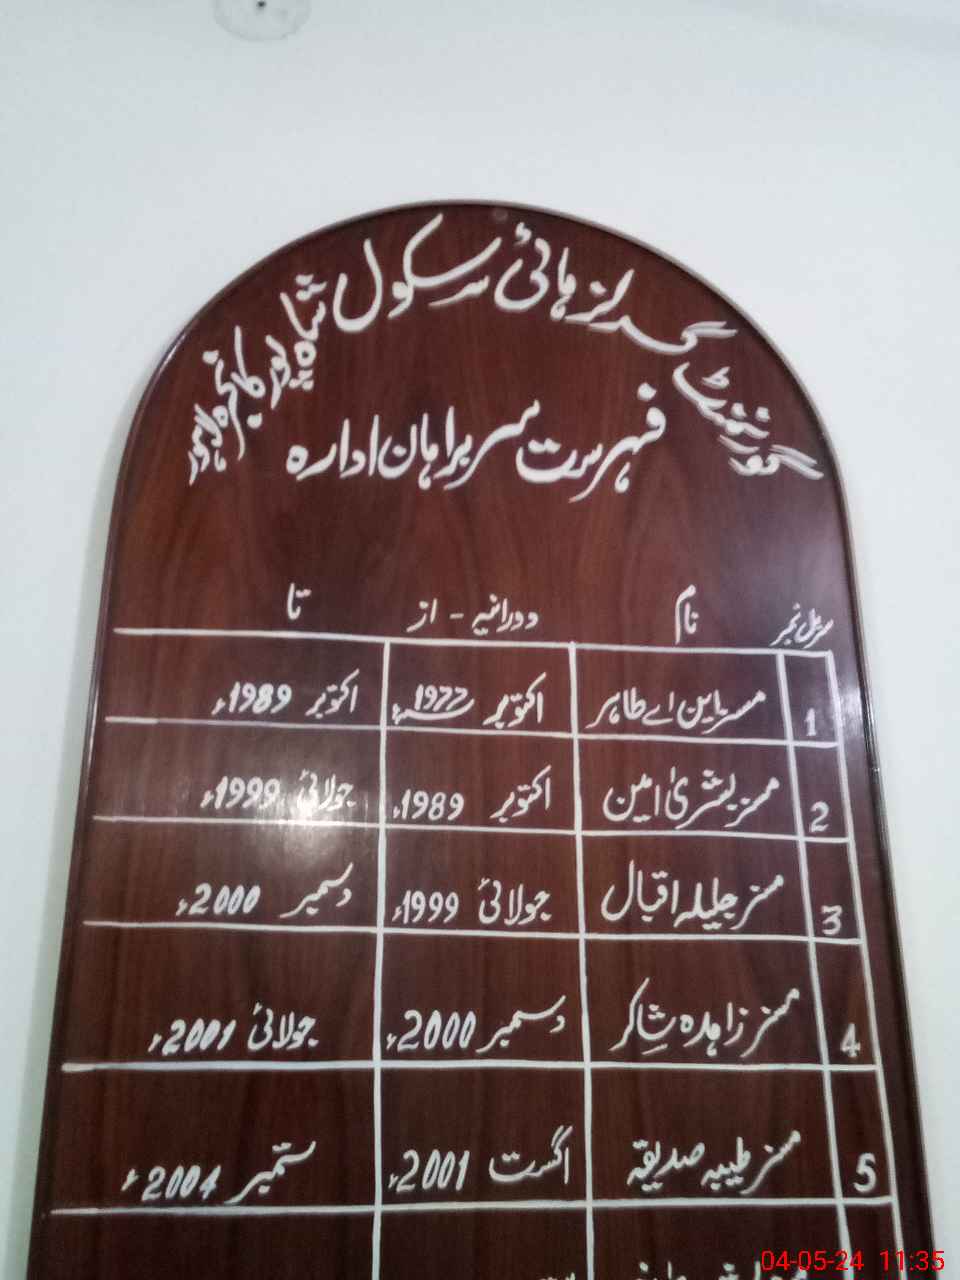 گورنمنٹ گرلز ہائی سکول شاہ پور کانجرہ لاہور
فہرست سربراہان ادارہ
سریل نمبر نام دورانیہ - از تا
1 مسز این اے طاہر اکتوبر 1977ء اکتوبر 1989ء
2 مسز بشریٰ امین اکتوبر 1989ء جولائی 1999ء
3 مسز جلیلہ اقبال جولائی 1999ء دسمبر 2000ء
4 مسز زاہدہ شاکر دسمبر 2000ء جولائی 2001ء
5 مسز طیبہ صدیقہ اگست 2001ء ستمبر 2004ء
04-05-24 11:35